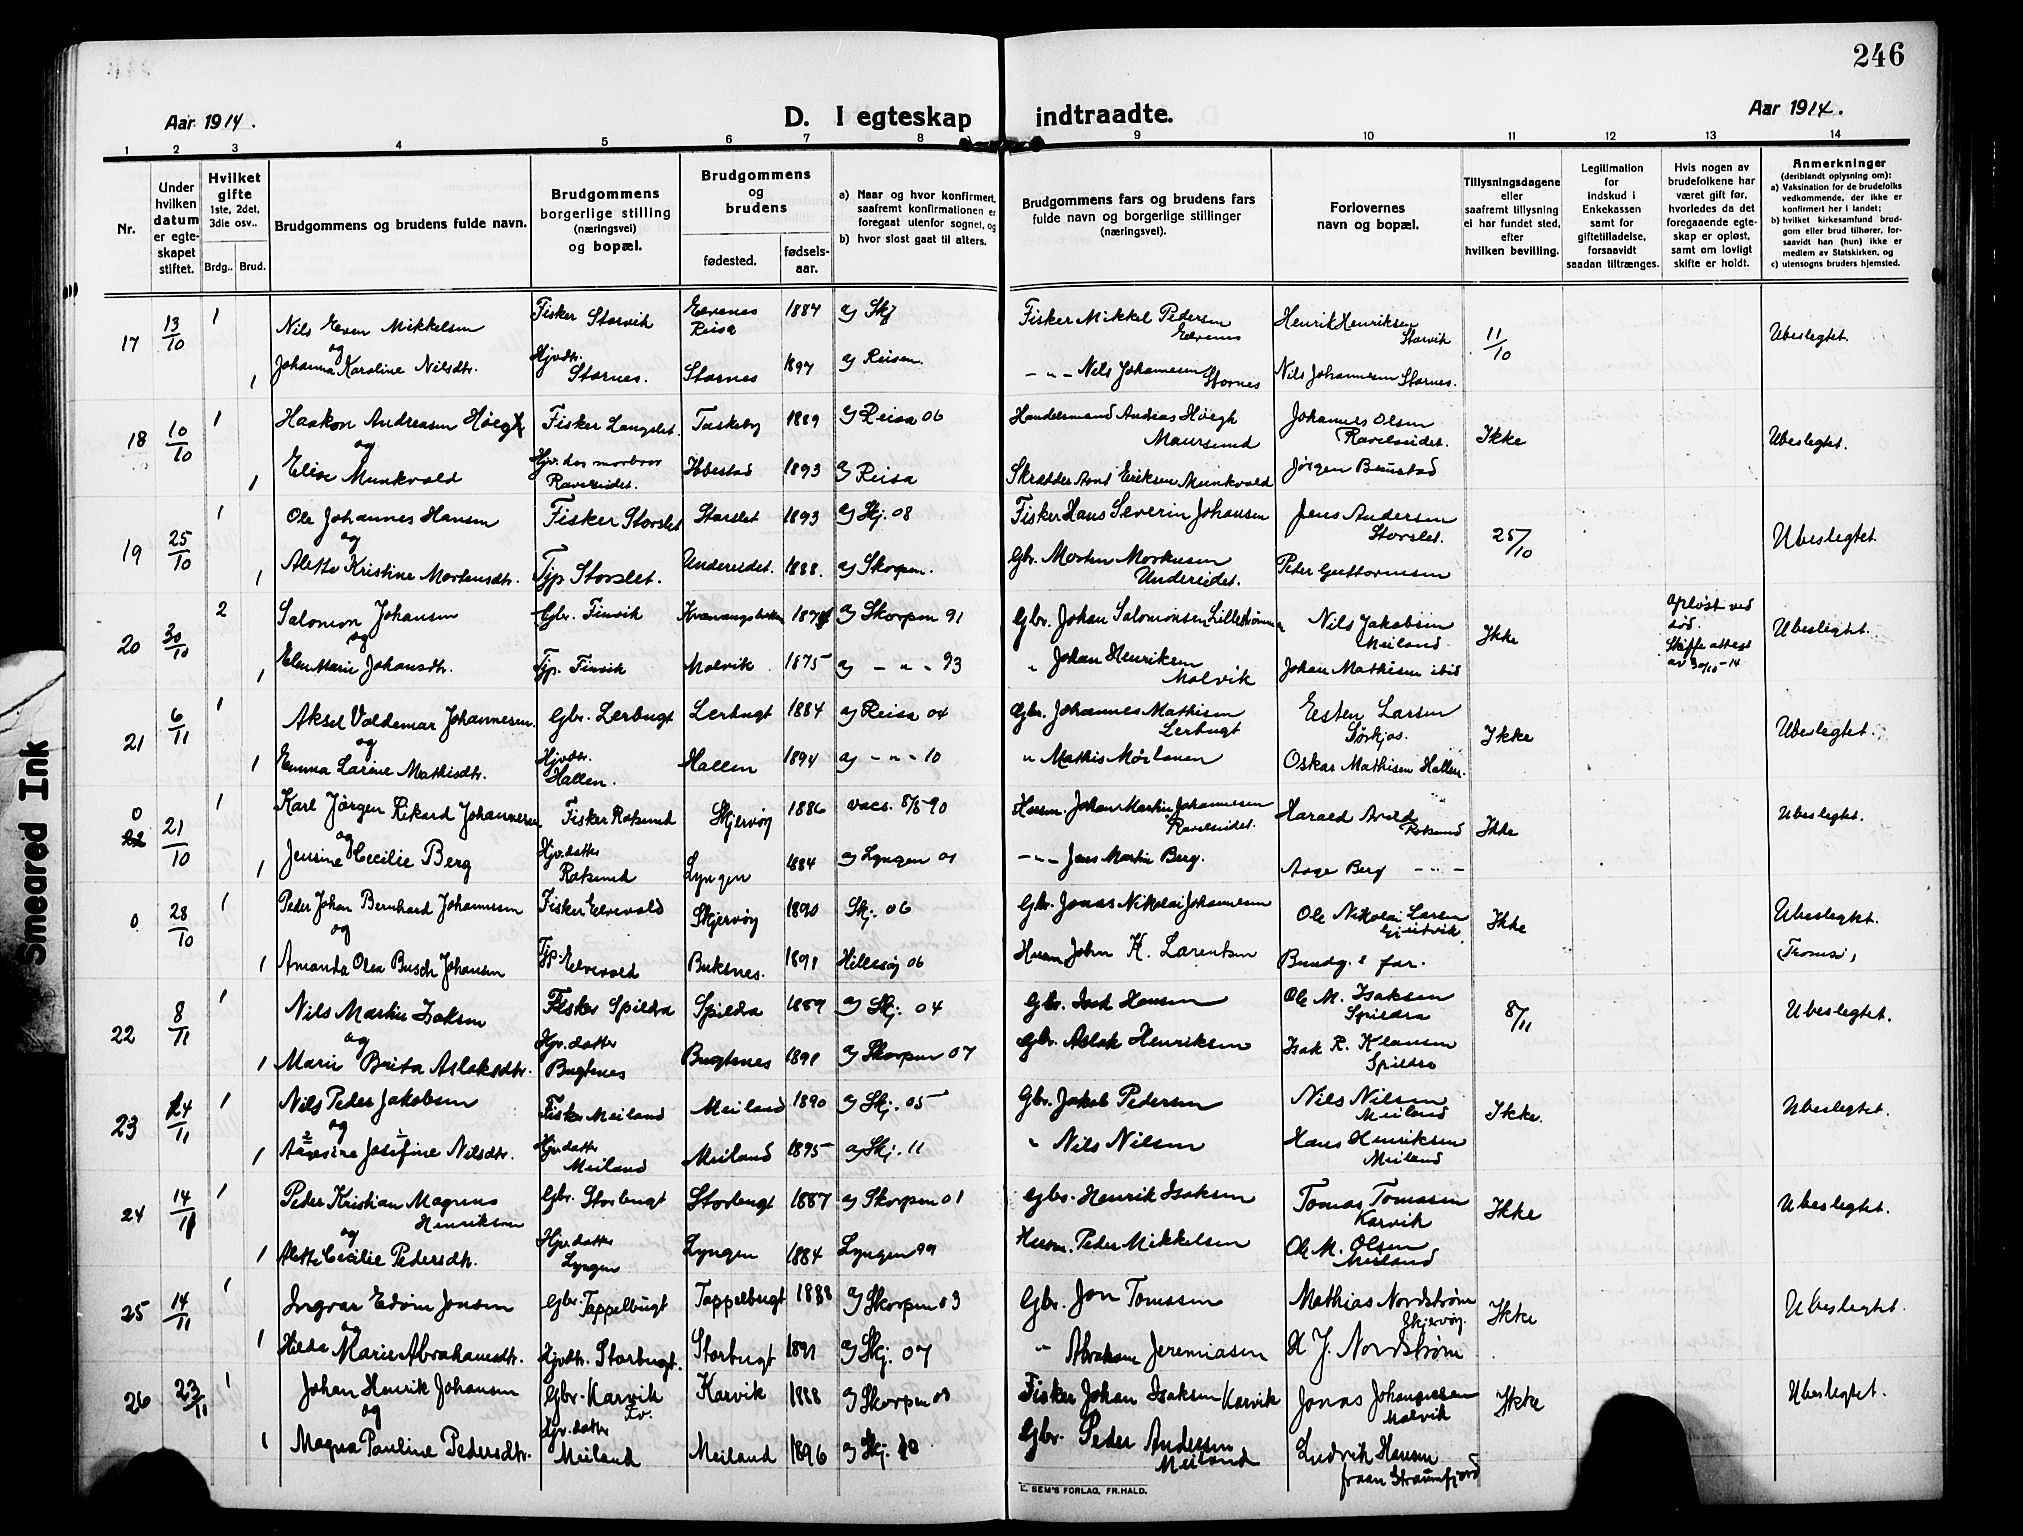 246
Aar 1914.
D. I egteskap indtraadte.
Aar 1914.
1 2 3 4 5 6 7 8 9 10 11 12 13 14
Nr.
Under hvilken datum er egte-skapet stiftet.
Hvilket gifte 1ste, 2det, 3die osv..
Brdg.. Brud.
Brudgommens og brudens fulde navn.
Brudgommens borgerlige stilling (næringsvei) og bopæl.
Brudgommens og brudens
fødested. fødsels-aar.
a) Naar og hvor konfirmert, saafremt konfirmationen er foregaat utenfor sognet, og
b) hvor sidst gaat til alters.
Brudgommens fars og brudens fars fulde navn og borgerlige stillinger (næringsvei).
Forlovernes navn og bopæl.
Tillysningsdagene eller saafremt tillysning ei har fundet sted, efter hvilken bevilling.
Legitimation for indskud i Enkekassen samt for giftetilladelse, forsaavidt saadan tiltrænges.
Hvis nogen av brudefolkene har været gift før, hvorledes da det foregaaende egte-skap er opløst, samt om lovligt skifte er holdt.
Anmerkninger (deriblandt oplysning om):
a) Vaksination for de brudefolks vedkommende, der ikke er konfirmert her i landet;
b) hvilket kirkesamfund brud-gom eller brud tilhører, for-saavidt han (hun) ikke er medlem av Statskirken, og
c) utensogns bruders hjemsted.
17 13/10 1 Nils Even Mikkelsen Fisker Storvik Elvenes Reisa 1887 a) Skj Fisker Mikkel Pedersen Elvenes Henrik Henriksen Storvik 11/10 Ubeslegtet.
og
1 Johanna Karoline Nilsdtr. Hjvdtr. Stornes. Stornes 1897 a) Reisen. – " – Nils Johannesen Stornes Nils Johannesen Stornes.
18 10/10 1 Haakon Andreasen Høegh Fisker Langslet. Taskeby 1889 a) Reisa 06 Handelsmand Andreas Høegh Maursund Johannes Olsen Ravelseidet. Ikke Ubeslegtet.
og
1 Elise Munkvold Hjv. hos morbror Ravelseidet. Ibbestad 1893 a) Reisa Skrædder Arnt Eriksen Munkvold Jørgen Benstad
19 25/10 1 Ole Johannes Hansen Fisker Storslet Storslet 1893 a) Skj. 08 Fisker Hans Severin Johansen Jens Andersen Storslet. 25/10 Ubeslegtet.
og
1 Alette Kristine Mortensdtr. Tjp Storslet. Undereidet. 1888. a) Skorpen. Gbr. Morten Morkusen Undereidet. Peder Guttormsen
20 30/10 2 Salomon Johansen Gbr. Finvik 187 a) Skorpen 91 Gbr. Johan Salomonsen Nils Jakobsen Meiland Ikke Opløst ved død. Skifteattest av 30/10-14 Ubeslegtet.
og
1 Elen Marie Johansdtr. Tjp. Finvik Malvik 1875 a) – " – 93 " Johan Henriksen Malvik Johan Mathisen ibid
21 6/11 1 Aksel Valdemar Johannesen. Gbr. Lerbugt Lerbugt 1884 a) Reisa 04 Gbr. Johannes Mathisen Lerbugt Eesten Larsen Sørkjos. Ikke Ubeslegtet.
og
1 Emma Larine Mathisdtr. Hjvdtr. Hallen. Hallen 1894 a) – " – 10 " Mathis Oskar Mathisen Hallen.
0 22 21/10 1 Karl Jørgen Rikard Johannesen Fisker Rotsund Skjervøy 1886 vacs. 8/8 90 Husm. Johan Martin Johannesen Ravelseidet. Harald Rotsund Ikke Ubeslegtet.
og
1 Jensine Cecilie Berg Hjv. datter Rotsund Lyngen 1884 a) Lyngen 01 – " – Jens Martin Berg. Aage Berg – " –
0 28/10 1 Peder Johan Bernhard Johannesen Fisker Elvevold Skjervøy 1890 Skj. 06 Gbr. Jonas Nikolai Johannesen Ole Nikolai Larsen Ikke Ubeslegtet.
og
1 Amanda Olea Busch Johansen Tjp. Elvevold Buksnes. 1891 Hillesøy 06 Husm John K. Larentsen Brudg. s far. (Tromsø,
22 8/11 1 Nils Martin Isaksen Fisker Spildra Spildra 1889 a) Skj. 04 Gbr. Isak Hansen Ole M. Isaksen Spildra 8/11 Ubeslegtet.
og
1 Marie Brita Aslaksdtr. Hjv. datter Bugtenes Bugtenes 1891 a) Skorpen 07 Gbr. Aslak Henriksen Isak R. Klausen Spildra
23 14/11 1 Nils Peder Jakobsen Fisker Meiland Meiland 1890 a) Skj. 05 Gbr. Jakob Pedersen Nils Nilsen Meiland Ikke. Ubeslegtet.
og
1 Josefine Nilsdtr. Hjvdatter Meiland Meiland 1895 a) Skj. 11 " Nils Nilsen Hans Henriksen Meiland
24 14/11 1 Peder Kristian Magnus Henriksen Gbr. Storbugt Storbugt 1887 a) Skorpen 01 Gbr. Henrik Isaksen Tomas Tomasen Karvik Ikke Ubeslegtet.
og
1 Alette Cecilie Pedersdtr. Hjv. datter Lyngen Lyngen 1884 Lyngen 99 Husm. Peder Mikkelsen Ole M. Olsen Meiland
25 14/11 1 Ingvar Edvin Jonsen Gbr. Tappelbugt Tappelbugt 1888 a) Skorpen 03 Gbr. Jon Tomasen Mathias Nordstrøm Skjervøy. Ikke Ubeslegtet.
og
1 Hilda Marie Abrahamsdtr. Hjvdtr. Storbugt. Storbugt 1891 a) Skj. 07 " Abraham Jeremiasen H J. Nordstrøm
26 23/11 1 Johan Henrik Johansen Gbr. Karvik Karvik 1888 a) Skorpen 03 Fisker Johan Isaksen Karvik Jonas Johannessen Malvik Ikke Ubeslegtet.
og
1 Magna Pauline Pedersdtr. Hjv. datter Meiland Meiland 1896 a) Skj. 10 Gbr. Peder Andersen Meiland Ludvik Hansen fraan Straumfjord
E. SEM'S FORLAG, FR.HALD.
Smeared Ink